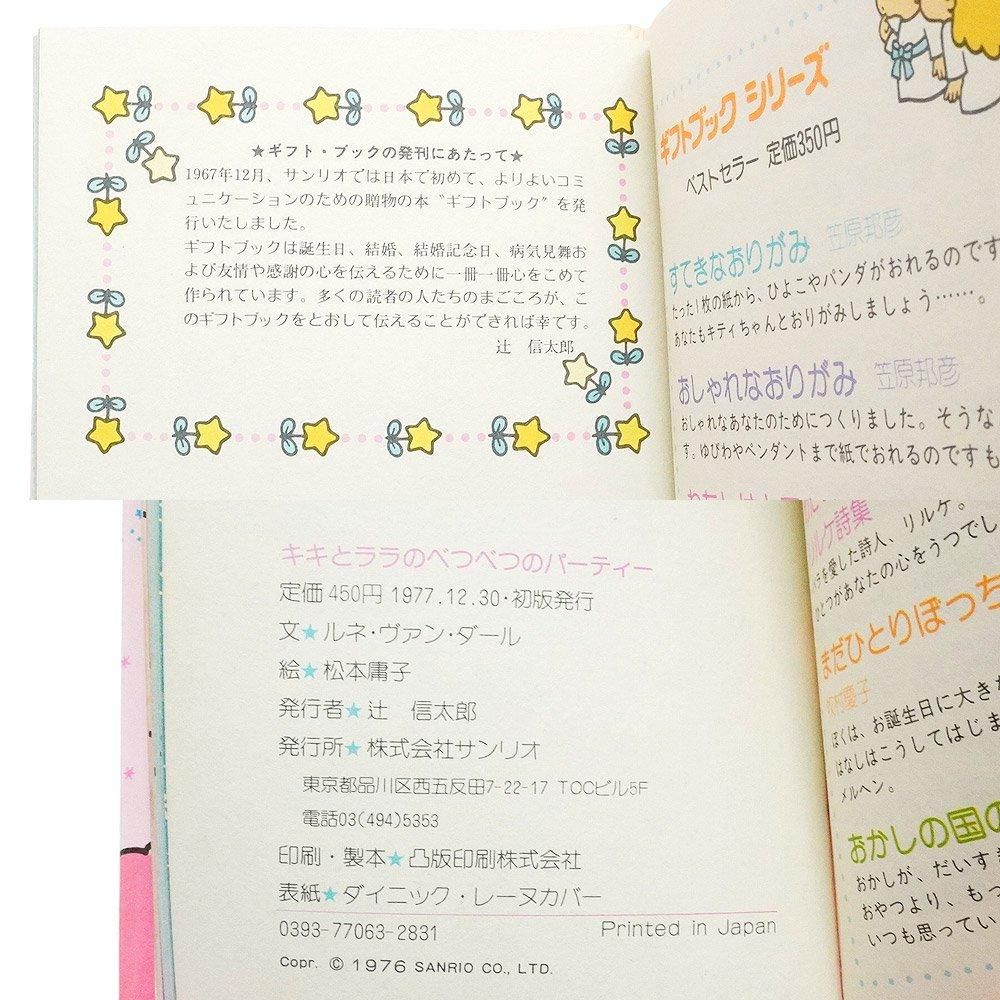 ★ギフト・ブックの発刊にあたって★
1967年12月、サンリオでは日本で初めて、よりよいコミ
ュニケーションのための贈物の本〝ギフトブック〟を発
行いたしました。
ギフトブックは誕生日、結婚、結婚記念日、病気見舞お
よび友情や感謝の心を伝えるために一冊一冊心をこめて
作られています。多くの読者の人たちのまごころが、こ
のギフトブックをとおして伝えることができれば幸です。
辻 信太郎
ギフトブック シリーズ
ベストセラー 定価350円
すてきなおりがみ 笠原邦彦
たった1枚の紙から、ひよこやパンダがおれるのです
あなたもキティちゃんとおりがみしましょう……。
おしゃれなおりがみ 笠原邦彦
おしゃれなあなたのためにつくりました。そうな
す。ゆびわやペンダントまで紙でおれるのですも
キキとララのべつべつのパーティー
定価450円 1977.12.30・初版発行
文★ルネ・ヴァン・ダール
絵★松本庸子
発行者★辻 信太郎
発行所★株式会社サンリオ
東京都品川区西五反田7-22-17 TOCビル5F
電話03(494)5353
印刷・製本★凸版印刷株式会社
表紙★ダイニック・レーヌカバー
0393-77063-2831 Printed in Japan
Copr. © 1976 SANRIO CO., LTD.
リルケ詩集
ラを愛した詩人、リルケ。
ひとつがあなたの心をうつでし
まだひとりぼっち
ぼくは、お誕生日に大きな
はなしはこうしてはじま
メルヘン。
おかしの国の
おかしが、だいすき
おやつより、もっ
いつも思ってい